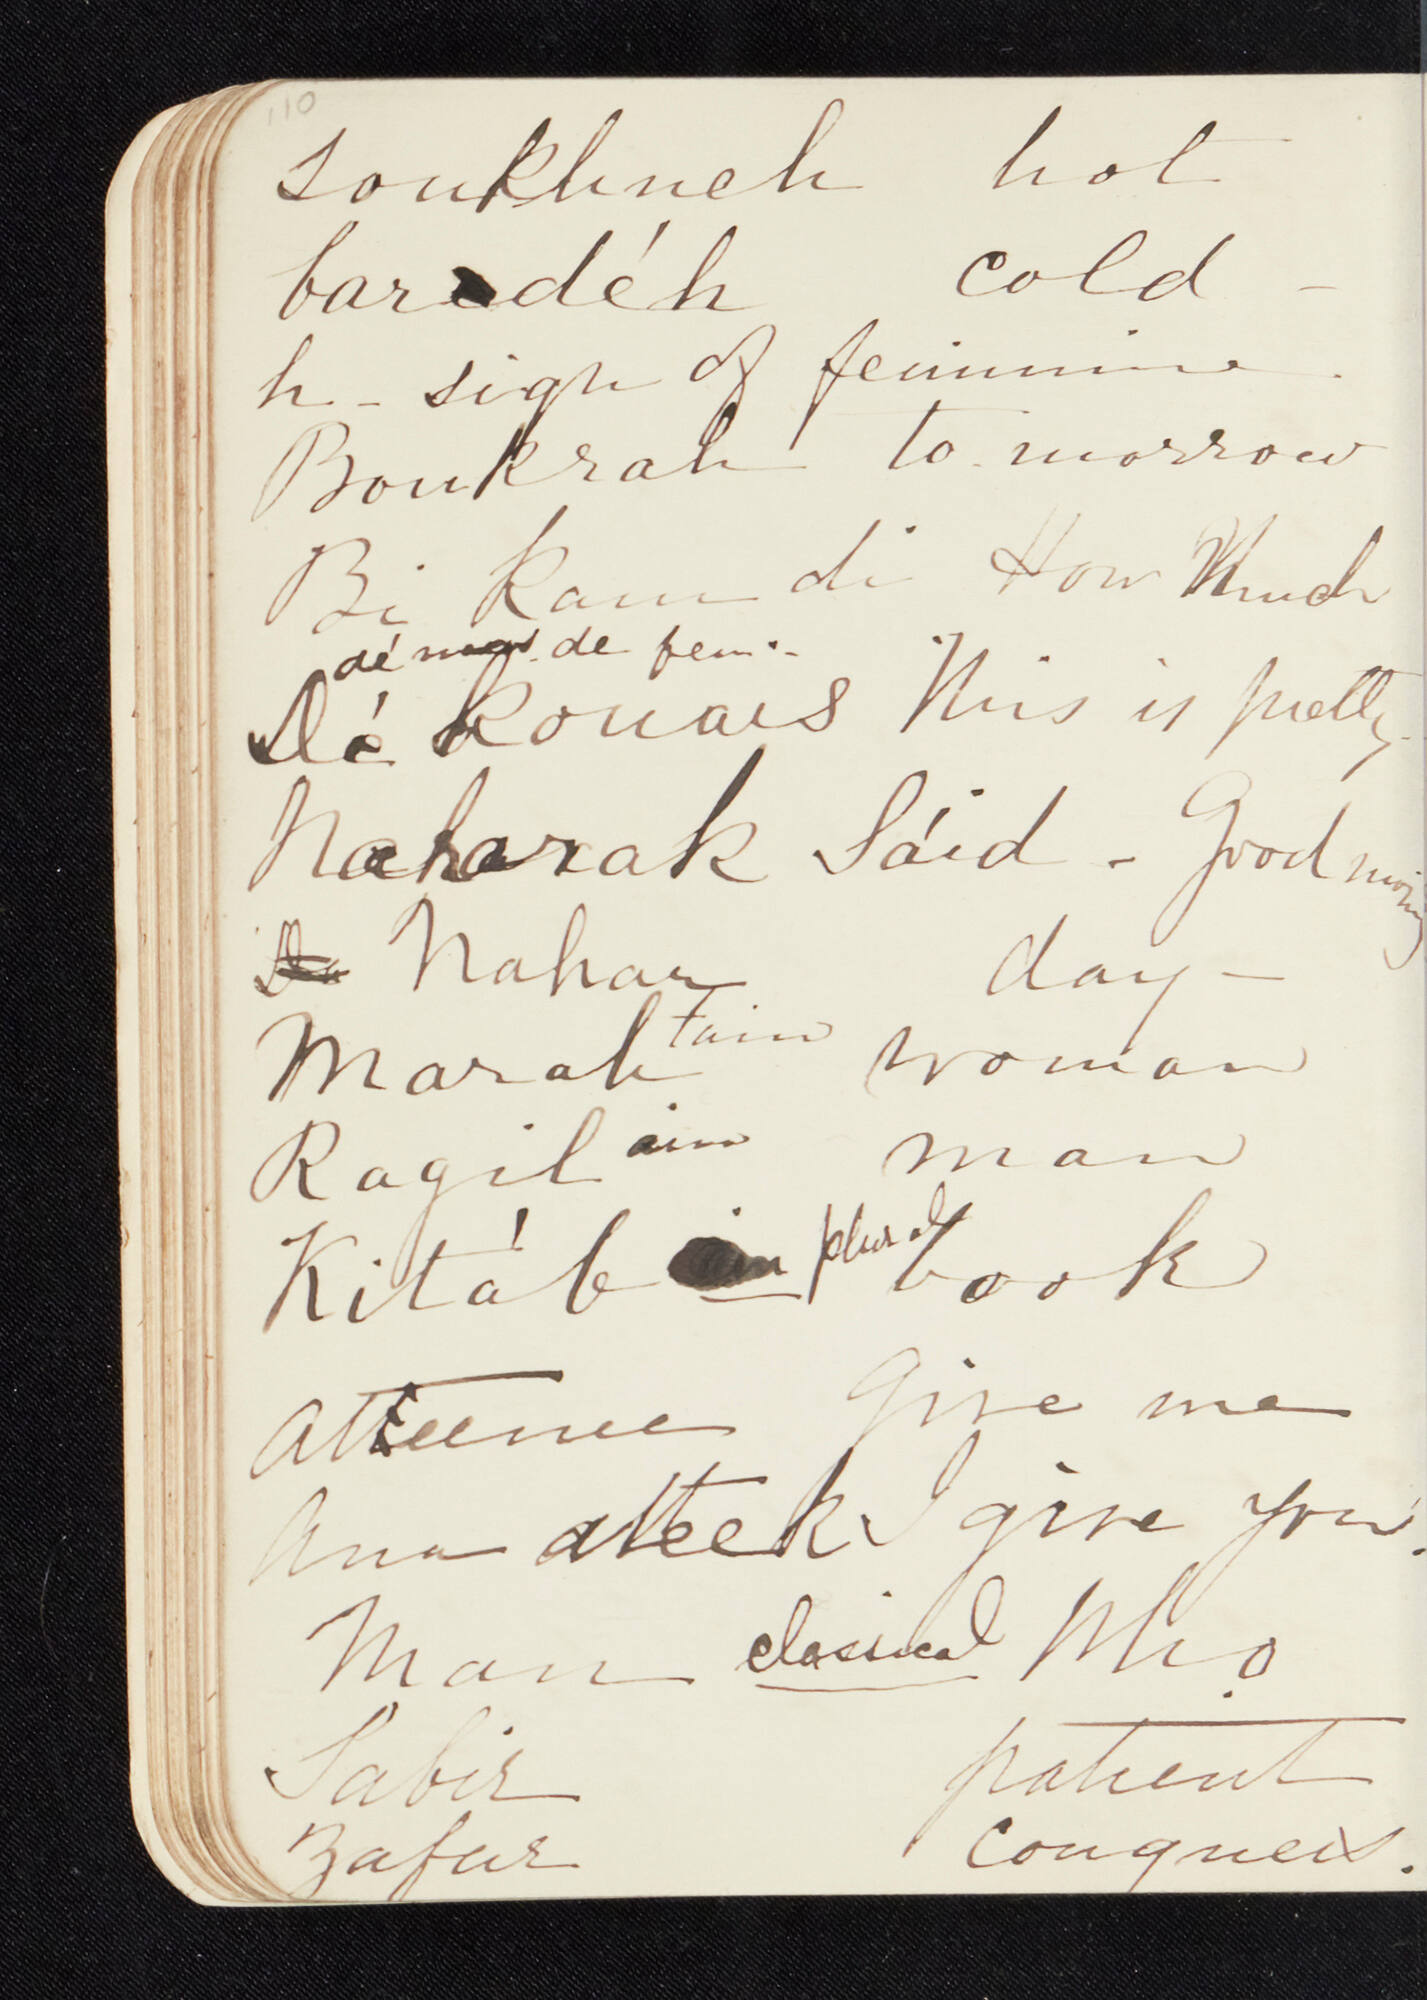 110
soukhneh hot
baredéh cold -
h - sign of feminine
Boukrah to-morrow
Bi Kam di How Much
dé mas. de fem.-
Dé Kouais This is pretty
Naharak Sáid - Good morning
Nahar day -
Marah tain woman
Ragil ain man
Kitáb in plural book
atteenee give me
Ana atteek I give you.
Man classical Who
Sabir patient
Zafur conquers.